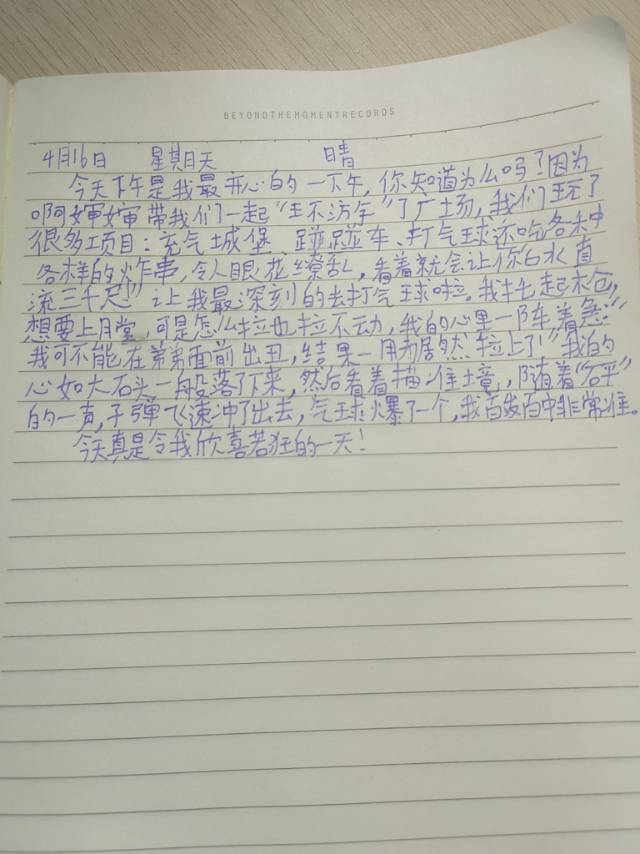 BEYONDTHEMOMENTRECORDS
4月16日 星期天 晴
今天下午是我最开心的一下午,你知道为么吗?因为
啊婶婶带我们一起"主不访年"了广场,我们玩了
很多项目:充气城堡、碰碰车、打气球还吃各种
各样的炸串,令人眼花缭乱,看着就会让你"口水直
流三千尺"让我最深刻的去打气球啦。我扛起木仓,
想要上月堂,可是怎么拉也拉不动,我的心里一阵着急:"
我可不能在弟弟面前出丑,结果一用力居然拉上了"我的
心如大石头一般落了下来,然后看着描准境,随着"石平"
的一声,子弹飞速冲了出去,气球爆了一个,我百发百中非常准。
今天真是令我欣喜若狂的一天!